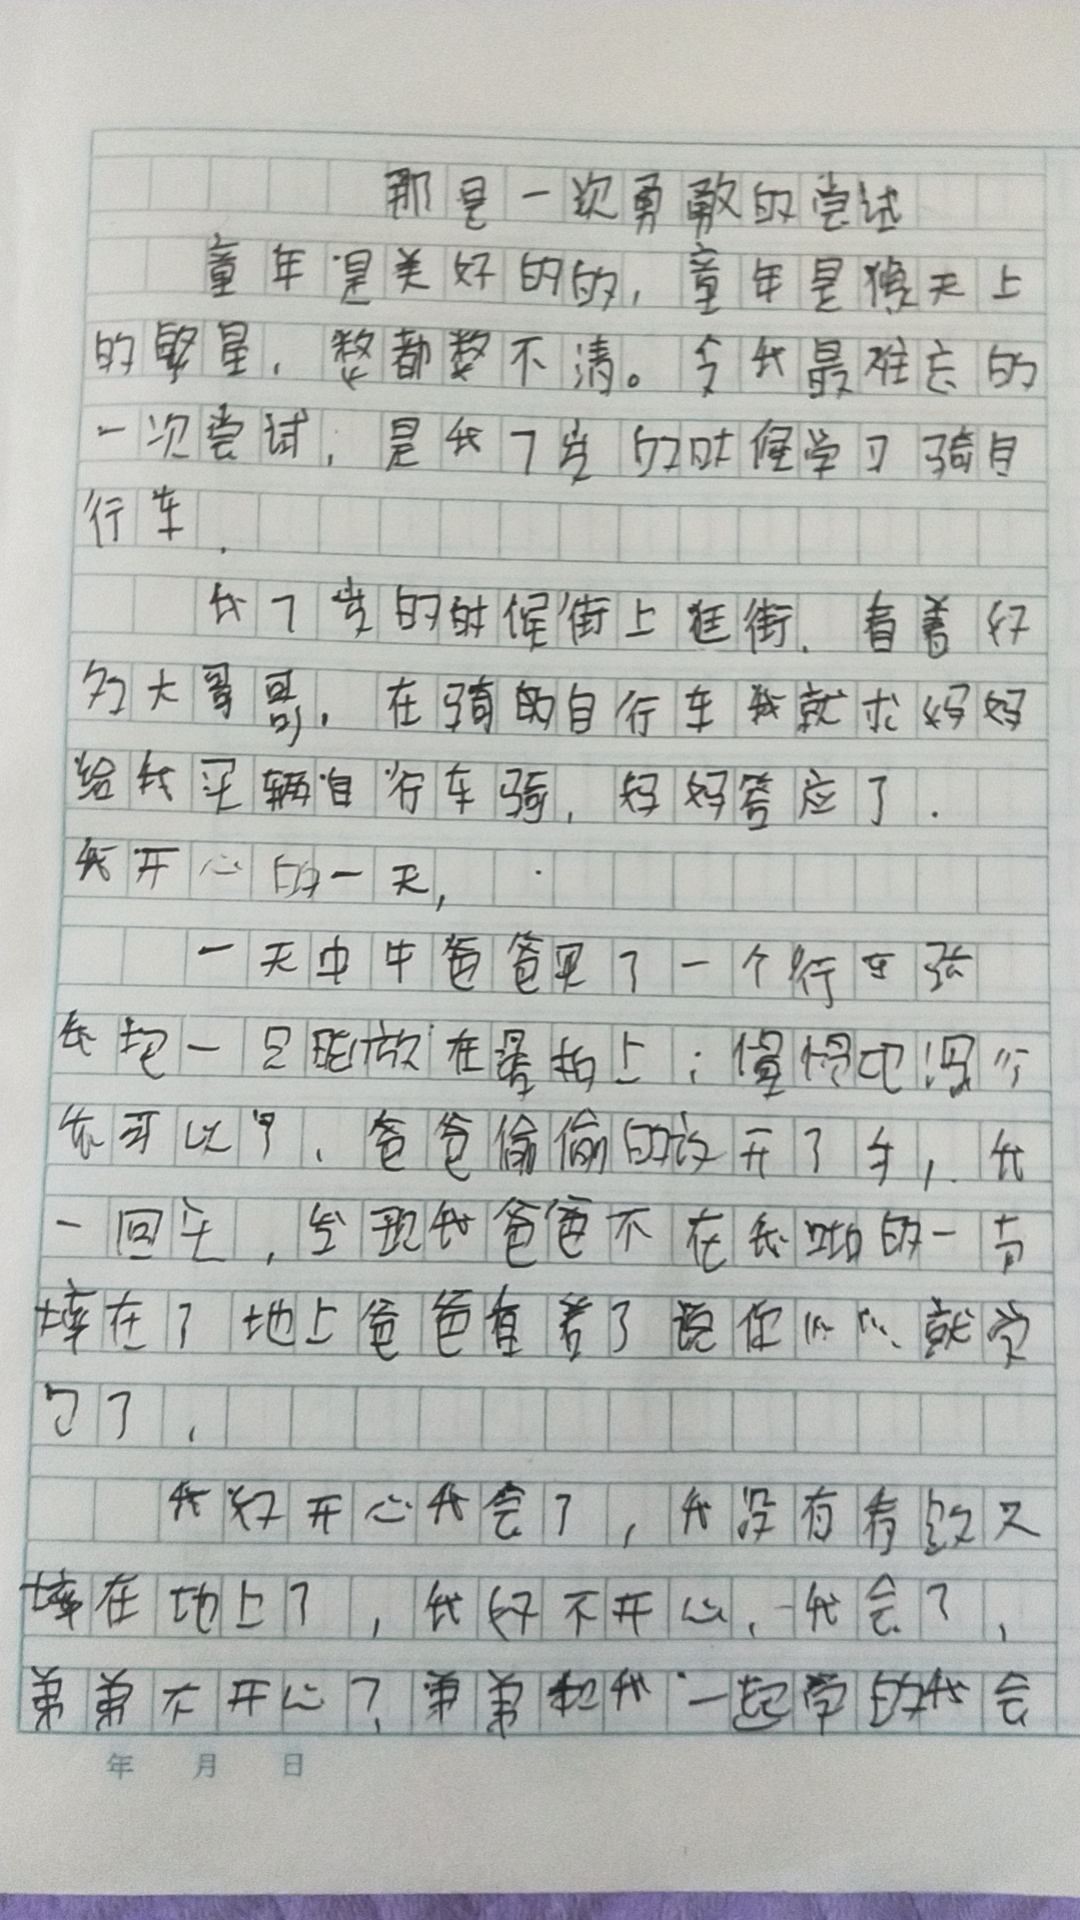 那是一次勇敢的尝试
童年是美好的的，童年是像天上
的繁星，数都数不清。令我最难忘的
一次尝试，是我7岁的时候学习骑自
行车.
我7岁的时候街上逛街.看着好
多大哥哥，在骑的自行车我就求妈妈
给我买辆自行车骑，妈妈答应了.
我开心的一天，
一天中午爸爸买了一个行车
我把一只脚放在踏板上；慢慢地
可以了、爸爸偷偷的放开了手，我
一回头，发现我爸爸不在我 的一
摔在了地上爸爸看着了说你 就学
习了，
我好开心我会了，我没有看路又
摔在地上了，我好不开心，我会了，
弟弟不开心了，弟弟和我一起学的我会
年 月 日